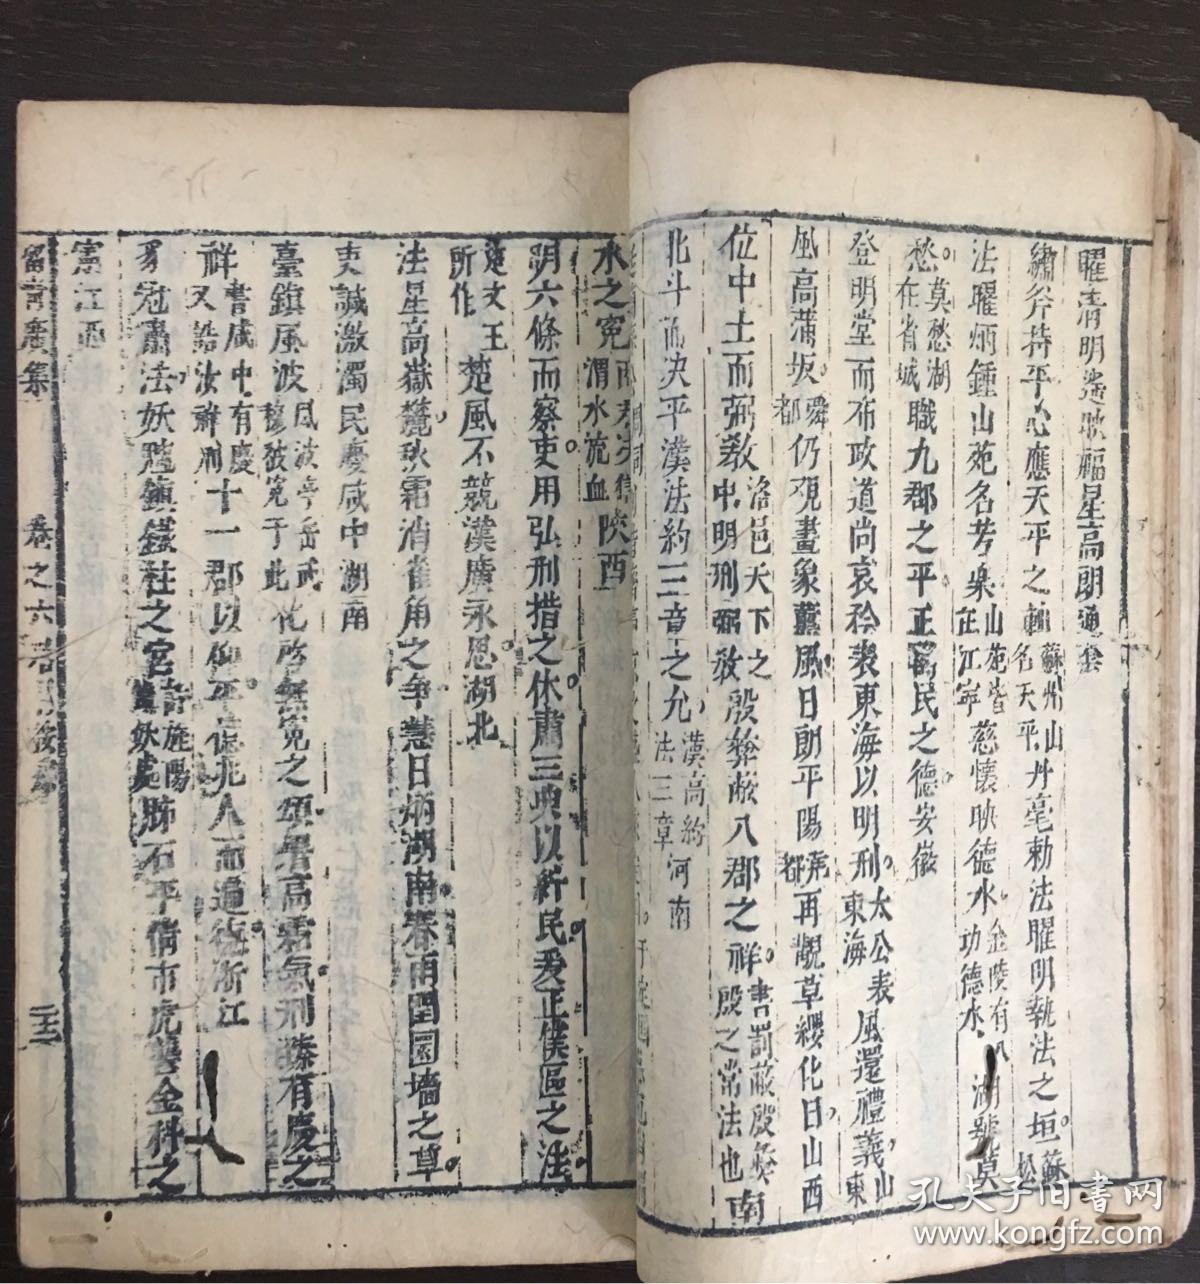 曜清明遙映福星高朗通套
繡斧持平心應天平之輔蘇州山名天平丹毫勅法曜明執法之垣蘇松
法曜炳鍾山苑名芳臬山苑皆在江寧慈懷映德水金陵有八功德水湖號莫
愁莫愁湖在省城職九郡之平正萬民之德安徽
登明堂而布政道尚哀矜表東海以明刑太公表東海風還禮義山東
風高蒲坂舜都仍覩畫象薰風日朗平陽堯都再覩草纓化日山西
位中土而弼教洛邑天下之中明刑弼教殷彝蔽八郡之祥書罰蔽殷彝祥殷之常法也南
北斗而決平漢法約三章之允漢高約法三章河南
水之冤渭水流血陝西
明六條而察吏用弘刑措之休肅三典以新民爰正僕區之法
楚文王所作楚風不競漢廣永思湖北
法星高嶽麓秋霜消雀角之爭慧日炳湖南春雨閏園墻之草
吏誠激濁民慶咸中湖南
臺鎮風波風波亭岳武穆被冤于此化啓無冤之頌署高霜氣刑臻有慶之
祥書咸中有慶又誥汝祥刑十一郡以仰平億兆人而遍德浙江
豸冠肅法妖魑鎮鐵柱之宮許旌陽鎮蛟處肺石平情市虎㩴金科之
憲江西
留青廣集
卷之六
二十二
孔夫子旧书网
www.kongfz.com